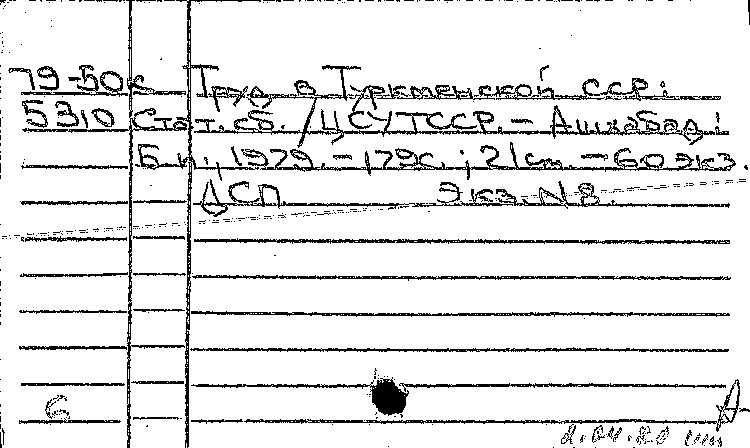 79-50к Труд в Туркменской ССР:
5310 Стат. сб. / ЦСУ ТССР. - Ашхабад:
Б.и., 1979. - 179с.; 21см. - 60 экз.
ДСП Экз. N 8.
6
2.04.80